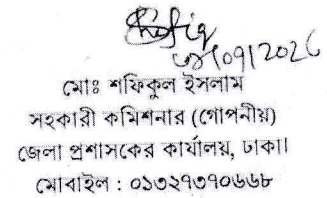 মোঃ শফিকুল ইসলাম
সহকারী কমিশনার (গোপনীয়)
জেলা প্রশাসকের কার্যালয়, ঢাকা।
মোবাইল : ০১৩২৭৩৭০৬৬৮